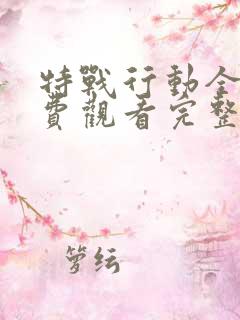 特戰行動全
費觀看完整
箩纭